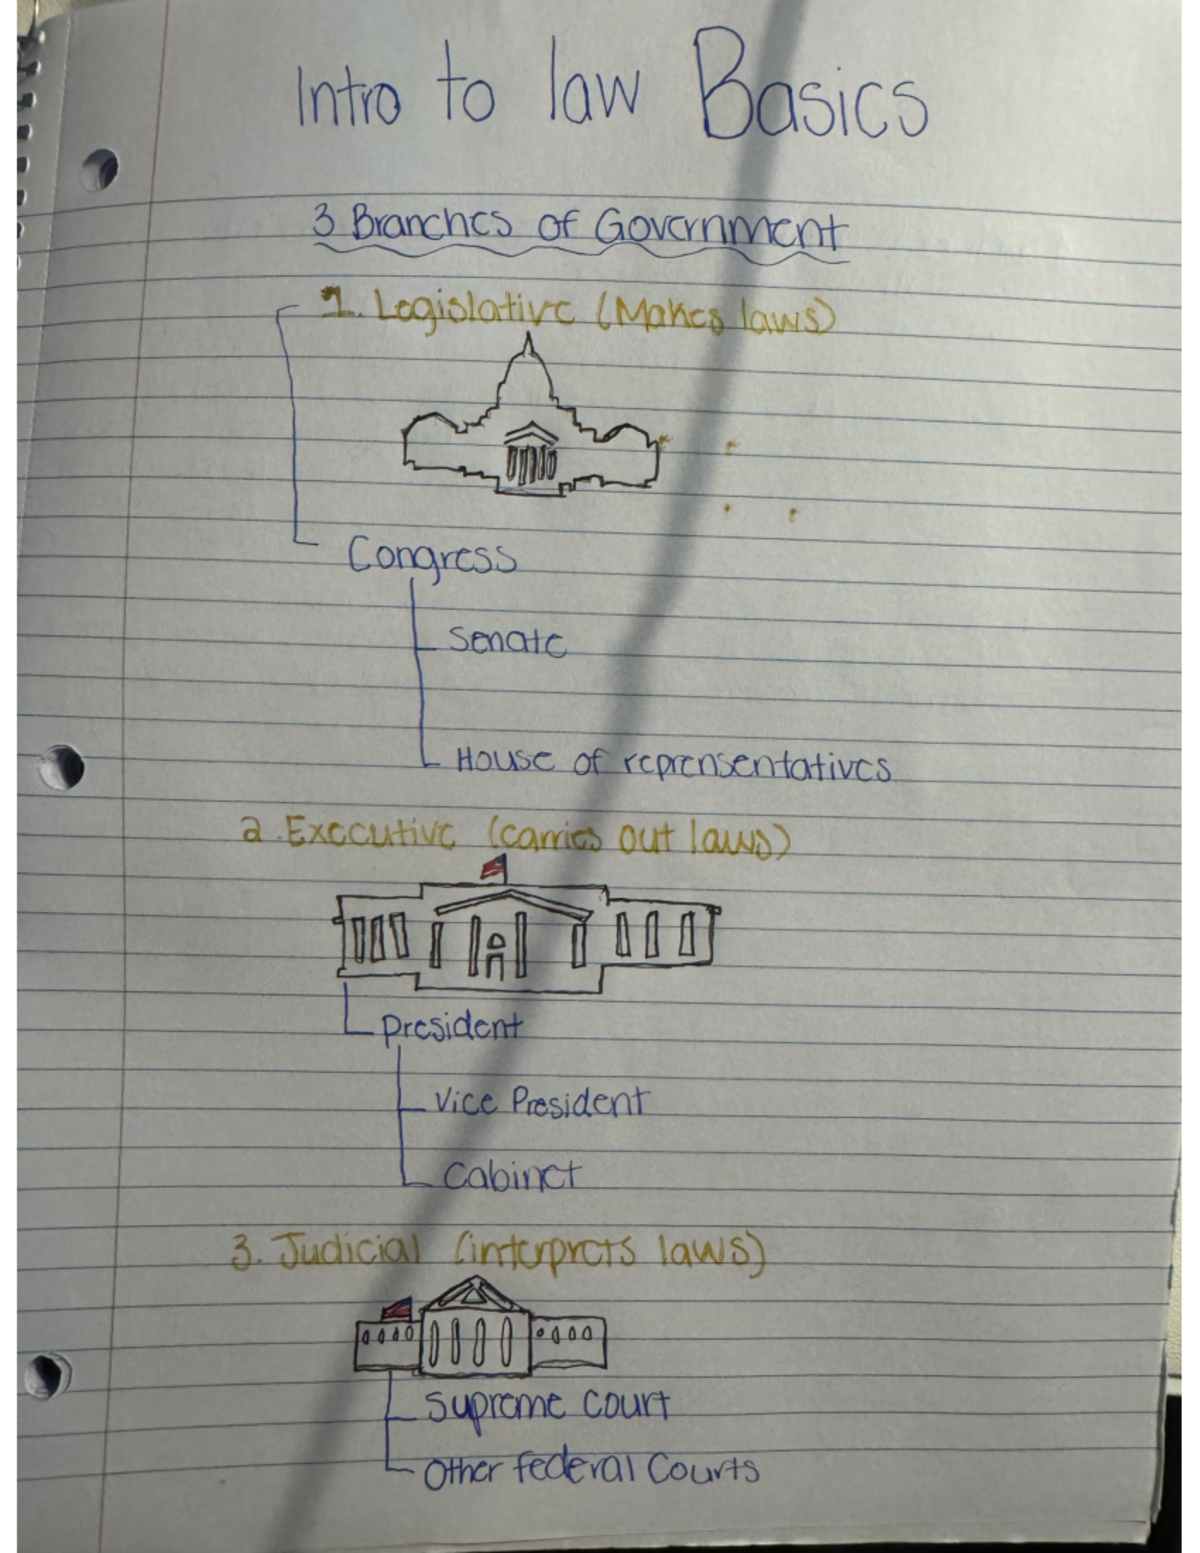 Intro to law Basics
3 Branches of Government
1. Legislative (Makes laws)
Congress
Senate
House of reprensentatives
2. Executive (carries out laws)
president
Vice President
Cabinet
3. Judicial (interprets laws)
Supreme Court
Other federal Courts